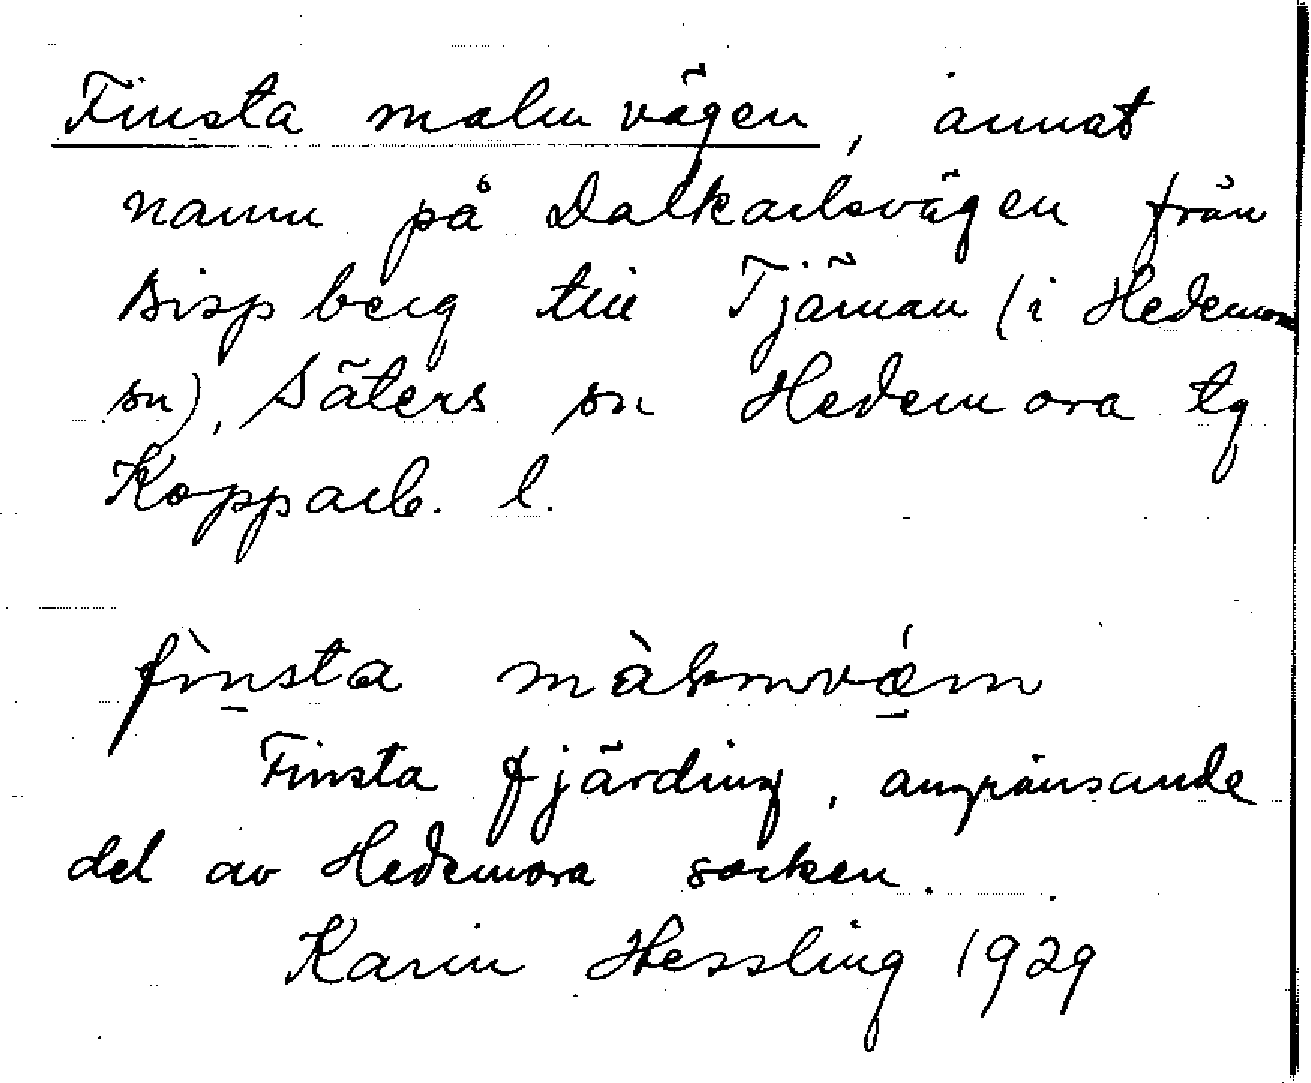 Finsta malmvägen, annat
namn på Dalkarlsvägen från
Bispberg till Tjärnan (i Hedemora
sn), Säters sn Hedemora tg
Kopparb. l.
fìnsta màlmvǽm
Finsta fjärding, angränsande
del av Hedemora socken.
Karin Hessling 1929